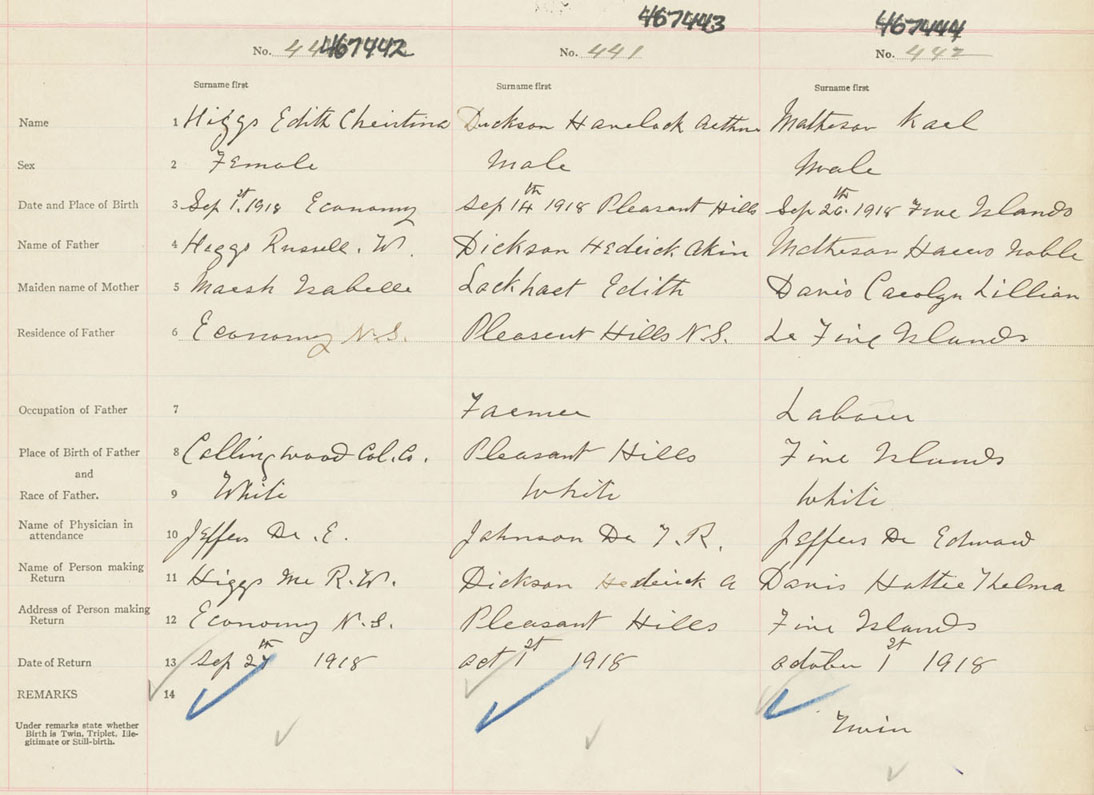 467443 467444
No. 44 467442 No. 441 No. 442
Surname first Surname first Surname first
Name 1 Higgs Edith Christina Dickson Havelock Arthur Matheson Karl
Sex 2 Female Male Male
Date and Place of Birth 3 Sep 1st 1918 Economy Sep 14th 1918 Pleasant Hills Sep 26th 1918 Five Islands
Name of Father 4 Higgs Russell. W. Dickson Hedrick Akin Matheson Harris Noble
Maiden name of Mother 5 Marsh Isabelle Lockhart Edith Davis Carolyn Lillian
Residence of Father 6 Economy N.S. Pleasent Hills N.S. Lr Five Islands
Occupation of Father 7 Farmer Labour
Place of Birth of Father 8 Collingwood Col. Co. Pleasant Hills Five Islands
and
Race of Father. 9 White White White
Name of Physician in
attendance 10 Jeffers Dr. E. Johnson Dr T. R. Jeffers Dr Edward
Name of Person making
Return 11 Higgs Mr R. W. Dickson Hedrick A Davis Hattie Thelma
Address of Person making
Return 12 Economy N.S. Pleasant Hills Five Islands
Date of Return 13 Sep 27th 1918 Oct 1st 1918 October 1st 1918
REMARKS 14
Under remarks state whether
Birth is Twin, Triplet, Ille-
gitimate or Still-birth. Twin